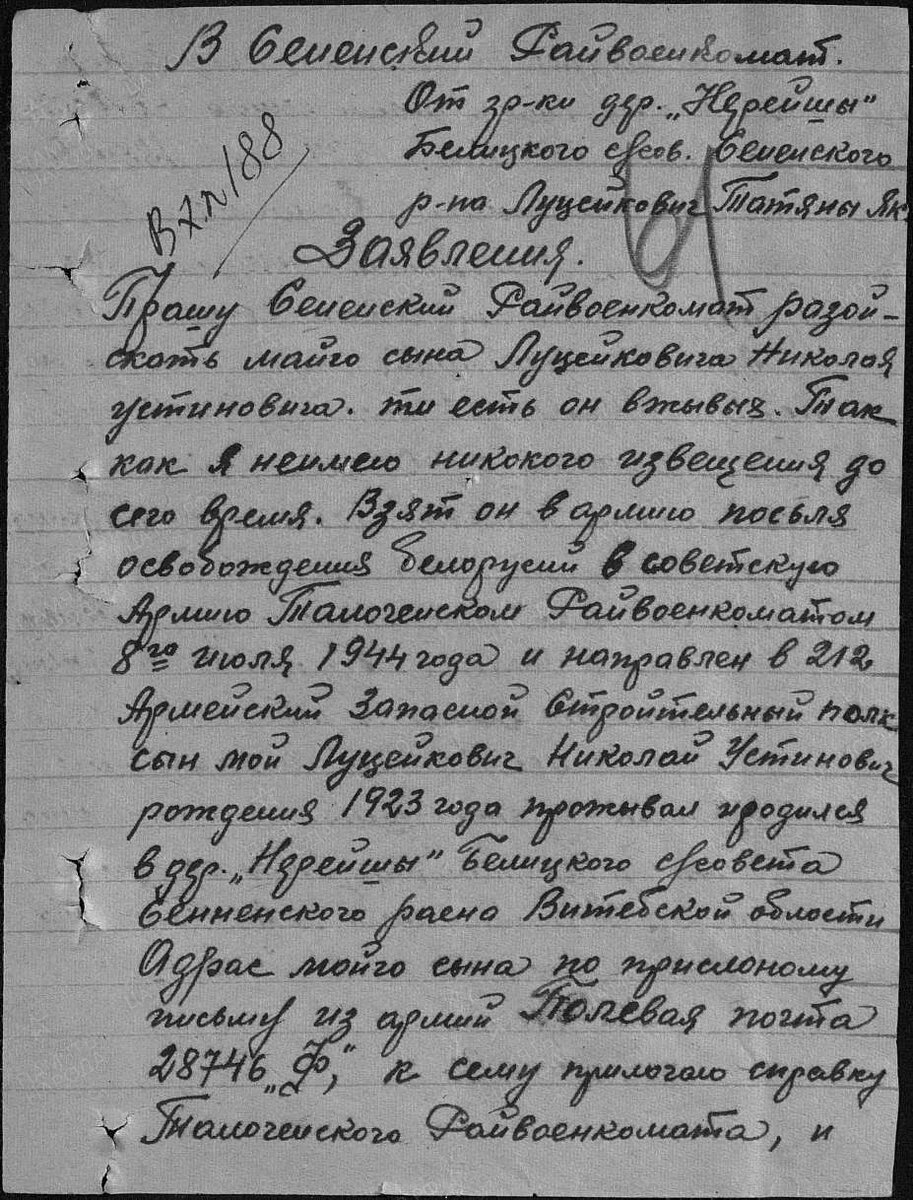 В Сененский Райвоенкомат.
От гр-ки дер. „Нерейшы"
Белицкого с/сов. Сененского
р-на Луцейкович Татяны Як.
Заявления.
Прашу Сененский Райвоенкомат разой-
скать майго сына Луцейковича Николая
устиновича. ти есть он вжывых. Так
как я неимею никокого извещения до
сего время. Взят он в армию посьля
освобождения белорусий в советскую
Армию Талоченском Райвоенкоматом
8го июля 1944 года и направлен в 212
Армейский Запасной Стройтельный полк
сын мой Луцейкович Николай Устинович
рождения 1923 года проживал иродился
в дер. „Нерейшы" Белицкого с/совета
Сенненского раена Витебской облости
Адрас мойго сына по прислоному
письму из армий Полевая почта
28746 „Ф", к сему прилогаю справку
Талоченского Райвоенкомата, и